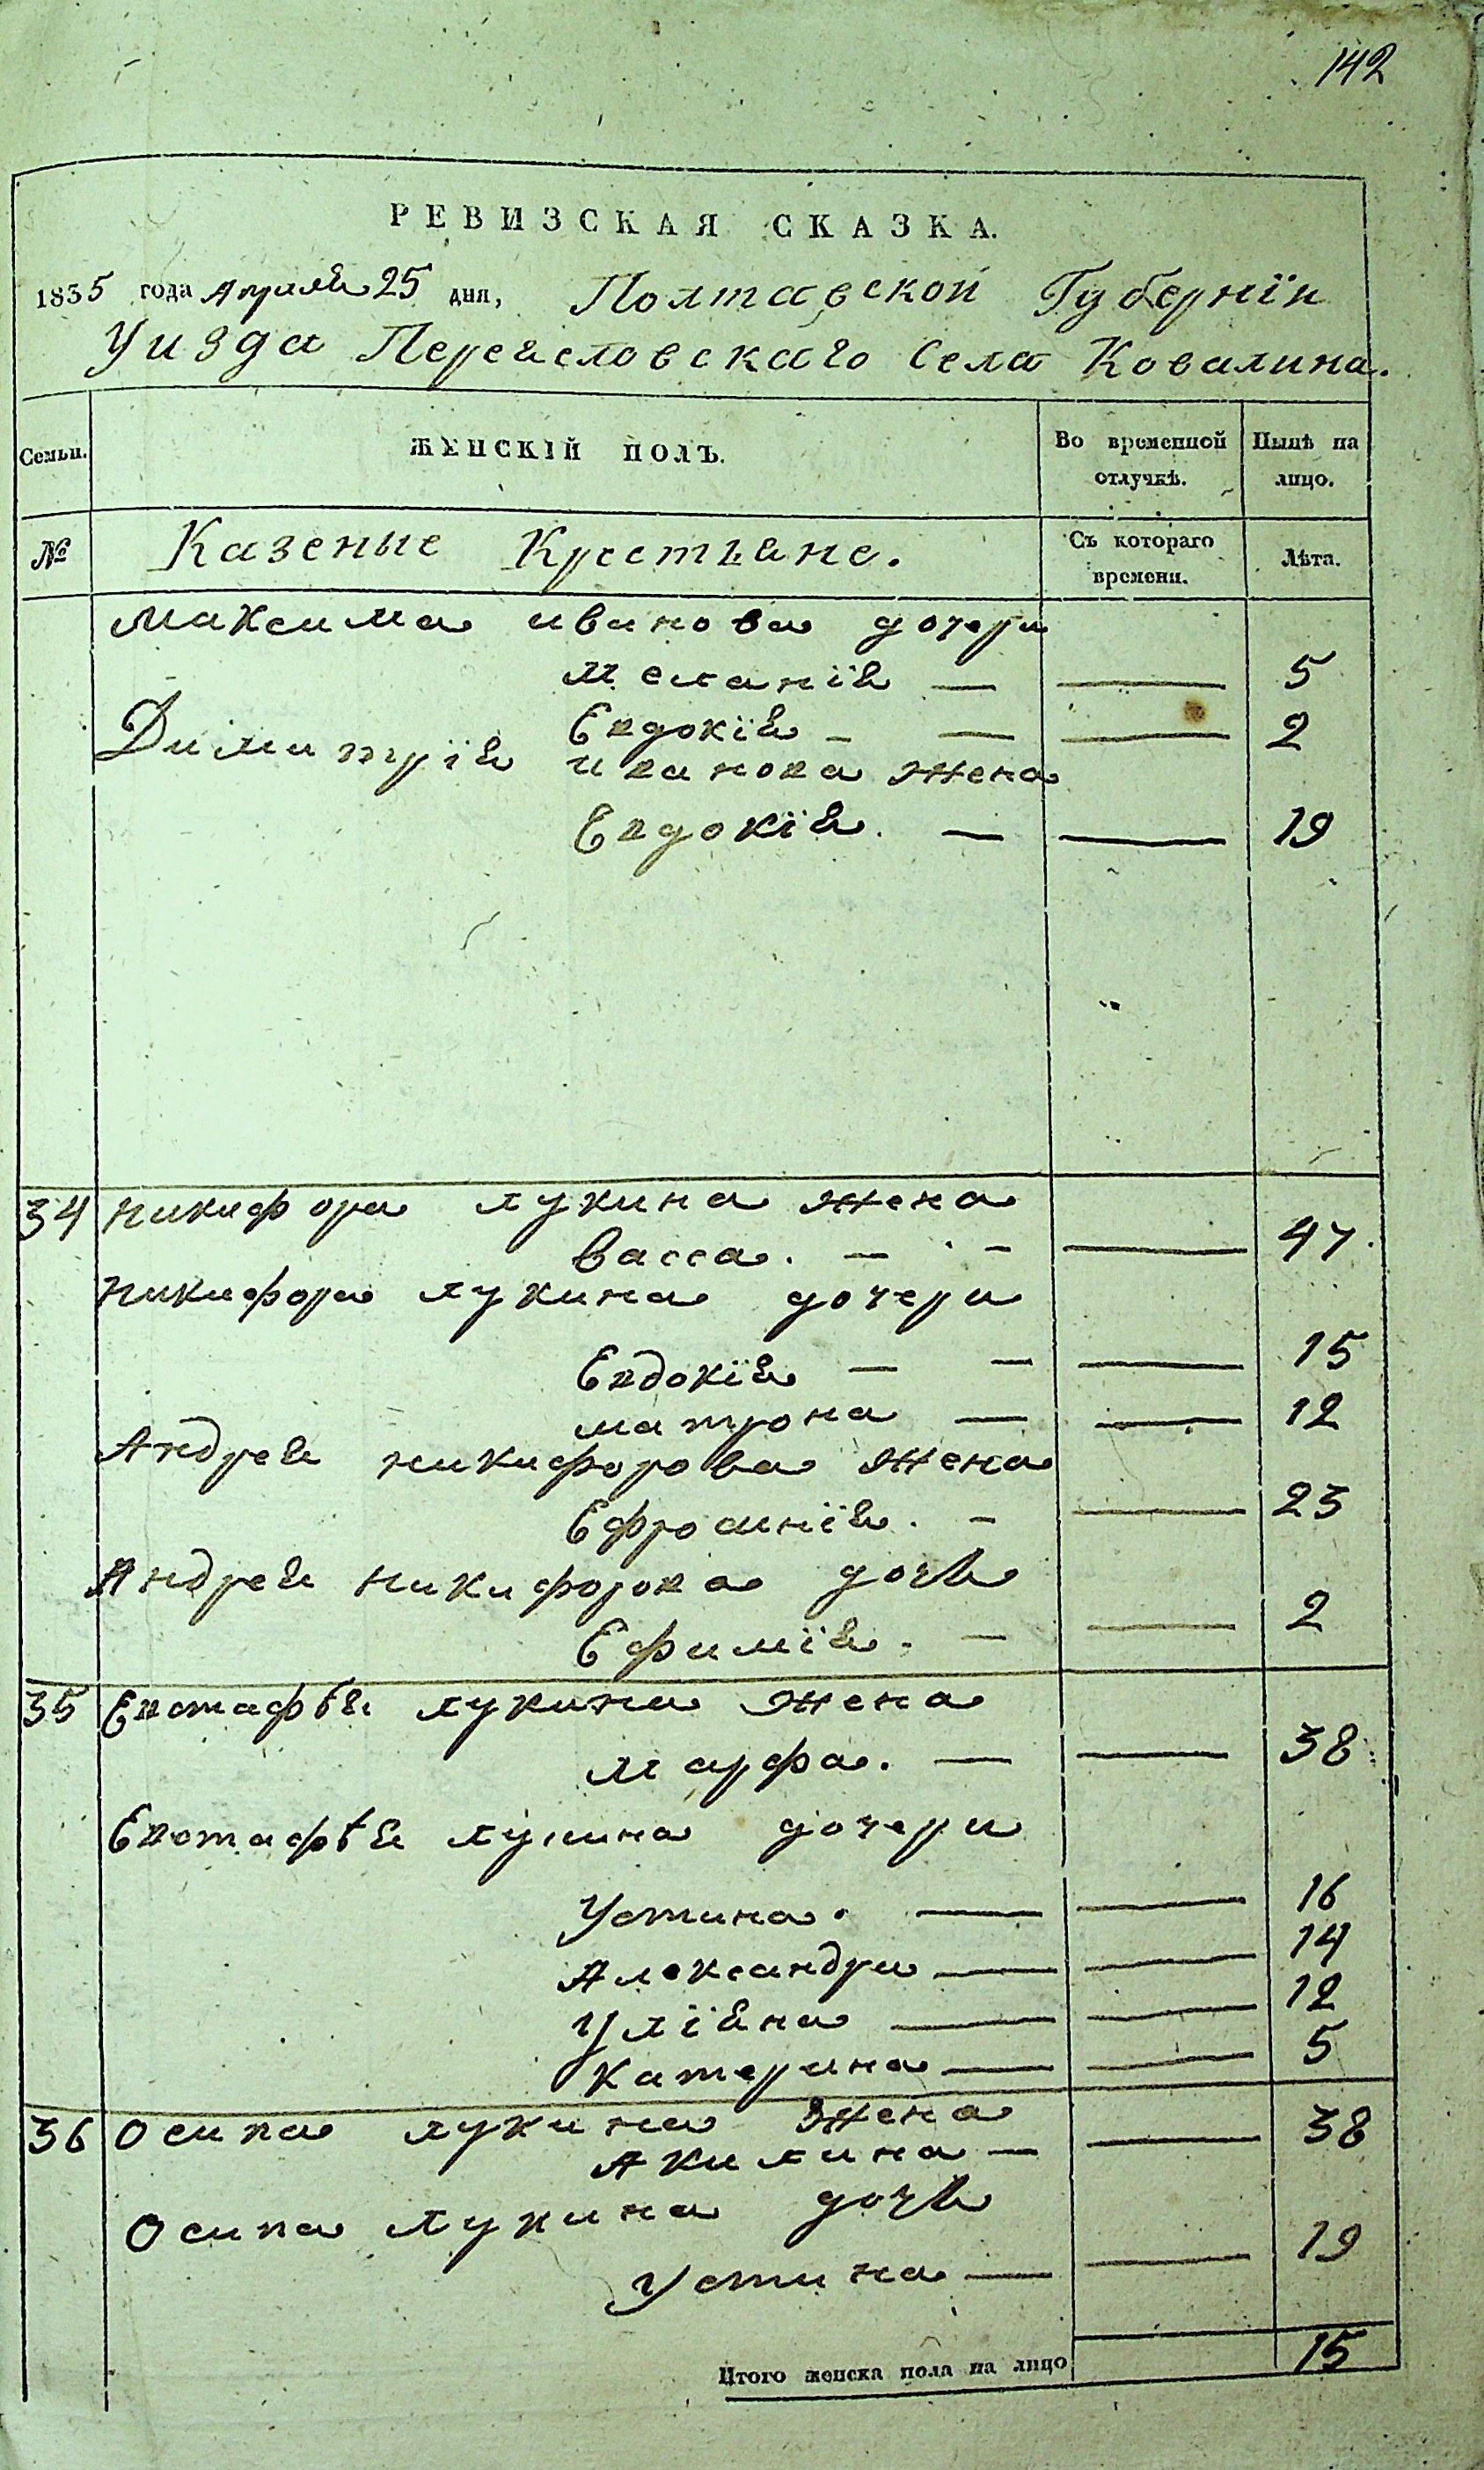 142
РЕВИЗСКАЯ СКАЗКА.
1835 года Апреля 25 дня, Полтавской Губернїи
Уизда Переясловскаго Села Ковалина.
Семьи. ЖЕНСКІЙ ПОЛЪ. Во временной отлучкѣ. Нынѣ на лицо.
№ Казеные Крестьяне. Съ котораго времени. Лѣта.
Максима иванова дочери
Меланїя — — 5
Евдокїя - — — 2
Димитрїя иванова жена
Евдокїя. — — 19
34 Никифора лукина жена
Васса. — - — 47.
Никифора лукина дочери
Евдокїя — — — 15
матрона — — 12
Андрея никифорова жена
Ефросинїя. - — 23
Андрея Никифорова дочь
Ефимїя. — — 2
35 Евстафѣя лукина жена
Марфа. — — 38
Евстафѣя лукина дочери
Устина. — — 16
Александра — — 14
Улїяна — — 12
Катерина — — 5
36 Осипа лукина жена
Акилина — — 38
Осипа лукина дочь
Устина — — 19
Итого женска пола на лицо 15